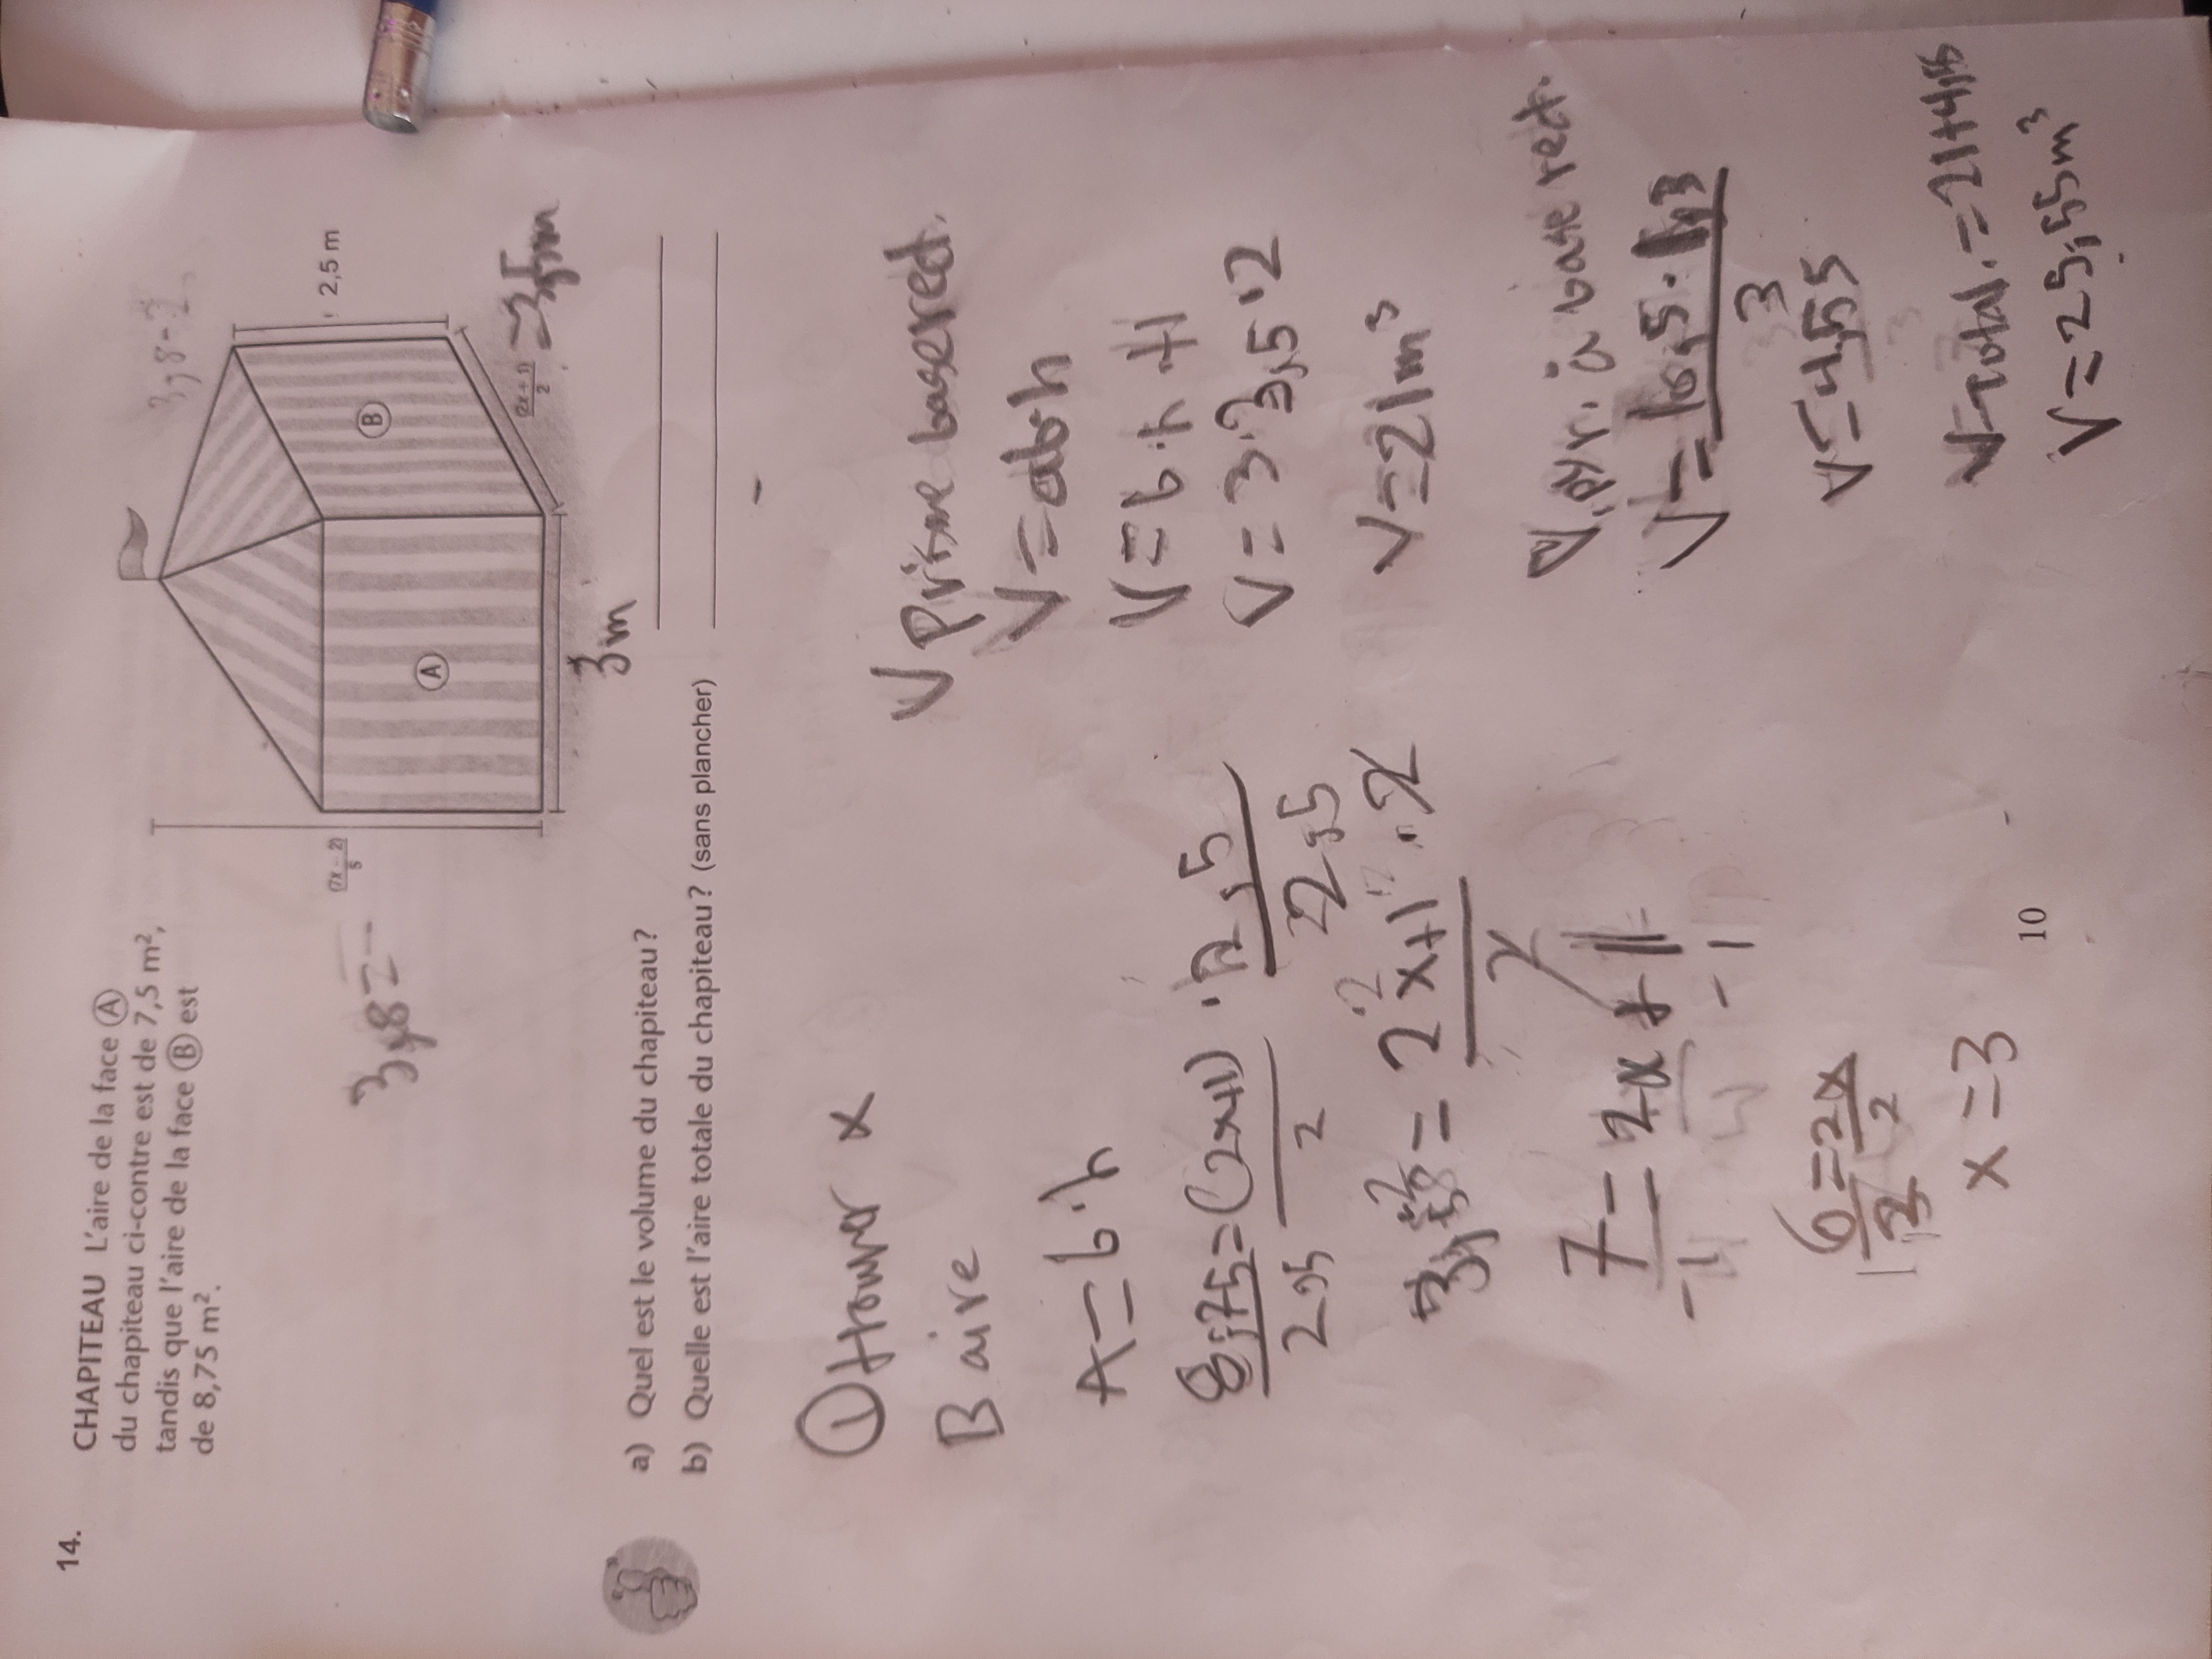 14.
CHAPITEAU L'aire de la face Ⓐ
du chapiteau ci-contre est de 7,5 m²,
tandis que l'aire de la face Ⓑ est
de 8,75 m².
(7x − 2)
5
Ⓐ
Ⓑ
2,5 m
(2x + 1)
2
=3,5m
3m
a) Quel est le volume du chapiteau?
b) Quelle est l'aire totale du chapiteau? (sans plancher)
① trouver x
B aire
A=b·h
8,75=(2x+1)·2,5
2,5 2 2,5
7=2x+1
-1
6=2x
2
x=3
V Prisme base rect.
V=ab·h
V=b·h·H
V=3·3,5·2
V=21m³
V pyr. à base rect.
3
V=4,55
V total.=21+4,55
V=25,55m³
10